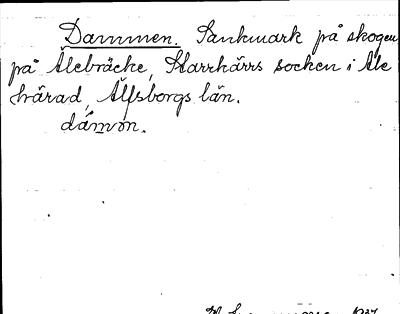 Dammen. Sankmark på skogen
på Älebräcke, Starrkärrs socken i Ale
härad, Älfsborgs län.
dámon.
1937